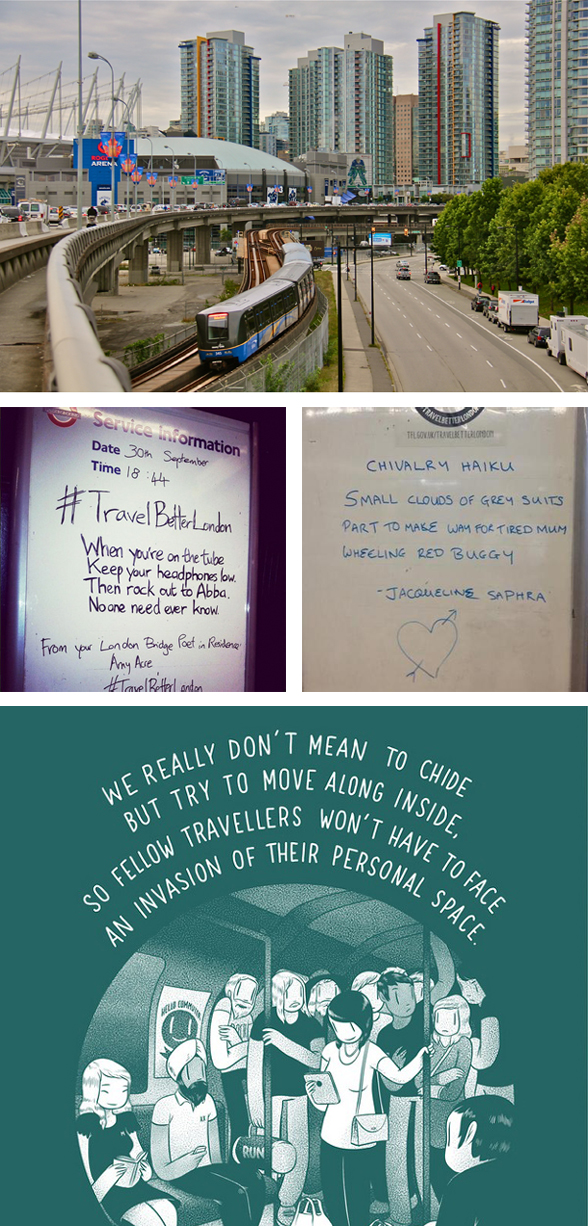 ROGERS
ARENA
Service information
Date 30th September
Time 18:44
#TravelBetterLondon
When you're on the tube
Keep your headphones low.
Then rock out to Abba.
No one need ever know.
From your London Bridge Poet in Residence
Amy Acre
#TravelBetterLondon
TFL.GOV.UK/TRAVELBETTERLONDON
CHIVALRY HAIKU
SMALL CLOUDS OF GREY SUITS
PART TO MAKE WAY FOR TIRED MUM
WHEELING RED BUGGY
-JACQUELINE SAPHRA
WE REALLY DON'T MEAN TO CHIDE
BUT TRY TO MOVE ALONG INSIDE,
SO FELLOW TRAVELLERS WON'T HAVE TO FACE
AN INVASION OF THEIR PERSONAL SPACE.
HELLO COMMUTER
RUN